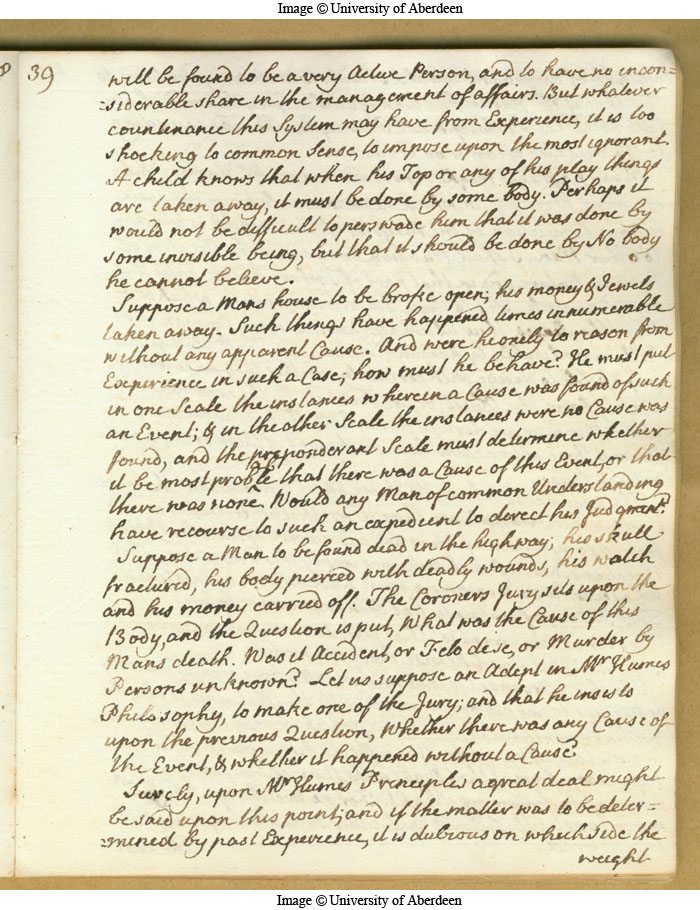 Image © University of Aberdeen
39
will be found to be a very Active Person, and to have no incon=
=siderable share in the management of affairs. But whatever
countenance this System may have from Experience, it is too
shocking to common Sense, to impose upon the most ignorant.
A child knows that when his Top or any of his play things
are taken away, it must be done by some body. Perhaps it
would not be difficult to perswade him that it was done by
some invisible being, but that it should be done by No body
he cannot believe.
Suppose a Mans house to be broke open; his money & Jewels
taken away. Such things have happened times innumerable
without any apparent Cause. And were he onely to reason from
Experience in such a Case; how must he behave? He must put
in one Scale the instances wherein a Cause was found of such
an Event; & in the other Scale the instances were no Cause was
found, and the preponderant Scale must determine whether
it be most probble that there was a Cause of this Event, or that
there was none. Would any Man of common Understanding
have recourse to such an expedient to direct his Judgment?
Suppose a Man to be found dead in the highway; his skull
fractured, his body pierced with deadly wounds, his watch
and his money carried off. The Coroners Jury sits upon the
Body, and the Question is put, What was the Cause of this
Mans death. Was it Accident, or Felo de se, or Murder by
Persons unknown? Let us suppose an Adept in Mr Humes
Philosophy, to make one of the Jury; and that he insists
upon the previous Question, Whether there was any Cause of
the Event, & whether it happened without a Cause?
Surely, upon Mr Humes Principles a great deal might
be said upon this point; and if the matter was to be deter=
=mined by past Experience, it is dubious on which side the
weight
Image © University of Aberdeen